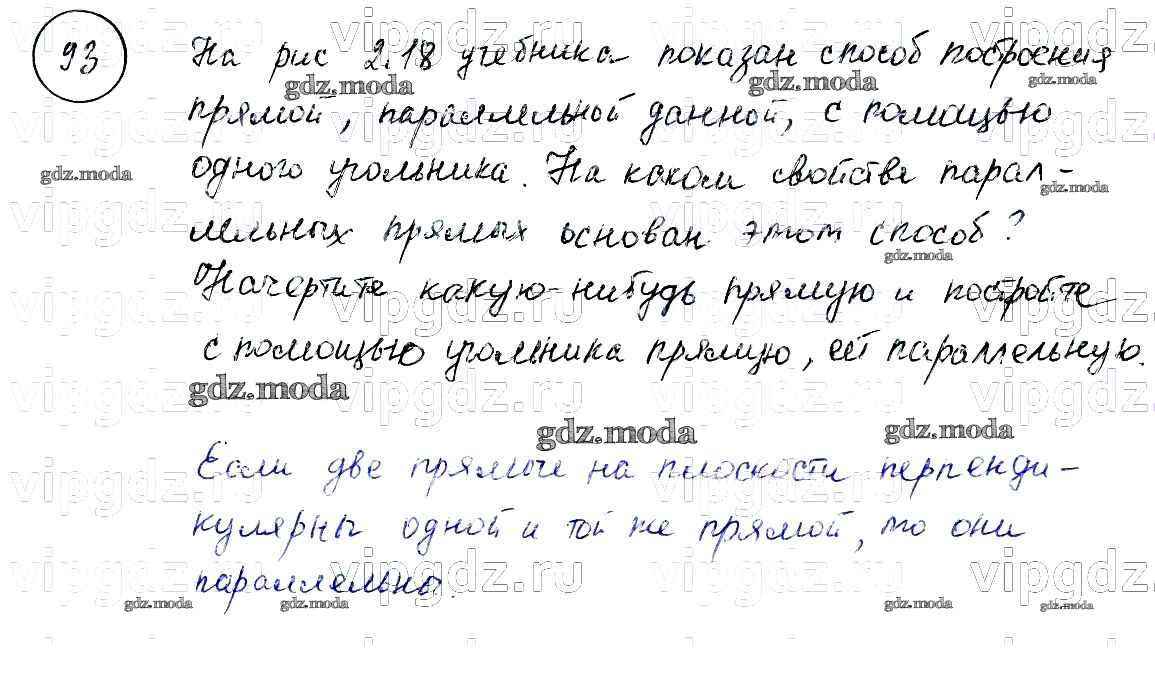 93
На рис 2.18 учебника показан способ построения
прямой, параллельной данной, с помощью
одного угольника. На каком свойстве парал-
лельных прямых основан этот способ?
Начертите какую-нибудь прямую и постройте
с помощью угольника прямую, ей параллельную.
Если две прямые на плоскости перпенди-
кулярны одной и той же прямой, то они
параллельны.
gdz.moda
vipgdz.ru